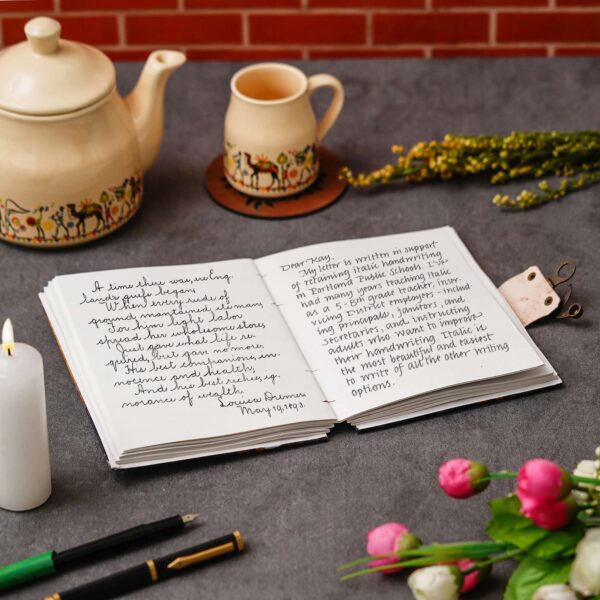 A time there was, ere Eng-
land's griefs began,
When every rude of
ground maintained its man;
For him light labor
spread her wholesome stores,
Just gave what life re-
quired, but gave no more,
His best companions, in-
nocence and health;
And his best riches, ig-
norance of wealth.
Louisa
May 19, 1893.
Dear Kay,
My letter is written in support
of retaining italic handwriting
in Portland Public Schools. I've
had many years teaching italic
as a 5-8th grade teacher, inser-
vicing District employers - includ-
ing principals, janitors, and
secretaries, and instructing
adults who want to improve
their handwriting. Italic is
the most beautiful and easiest
to write of all the other writing
options.